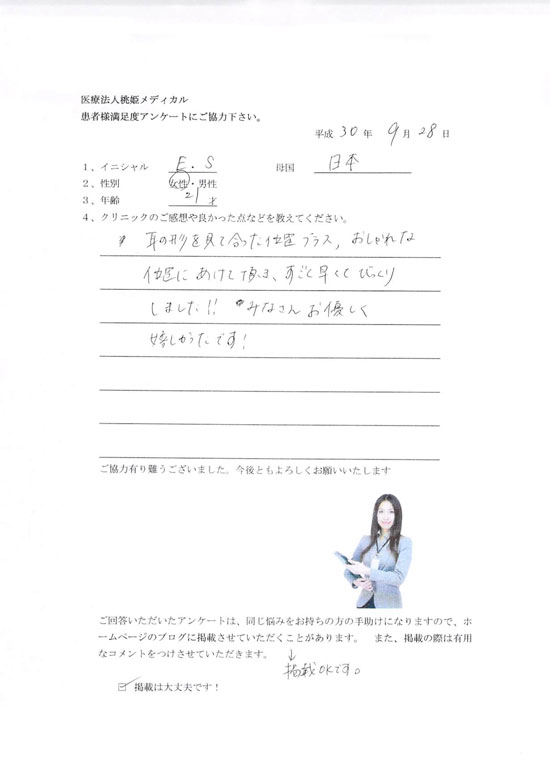 医療法人桃姫メディカル
患者様満足度アンケートにご協力下さい。
平成 30 年 9 月 28 日
1、イニシャル E.S 母国 日本
2、性別 女性・男性
3、年齢 21 才
4、クリニックのご感想や良かった点などを教えてください。
耳の形を見て合った位置プラス、おしゃれな
位置にあけて頂き、すごく早くてびっくり
しました!! みなさんお優しく
嬉しかったです!
ご協力有り難うございました。今後ともよろしくお願いいたします
ご回答いただいたアンケートは、同じ悩みをお持ちの方の手助けになりますので、ホ
ームページのブログに掲載させていただくことがあります。 また、掲載の際は有用
なコメントをつけさせていただきます。
↓
掲載OKです。
☑ 掲載は大丈夫です!